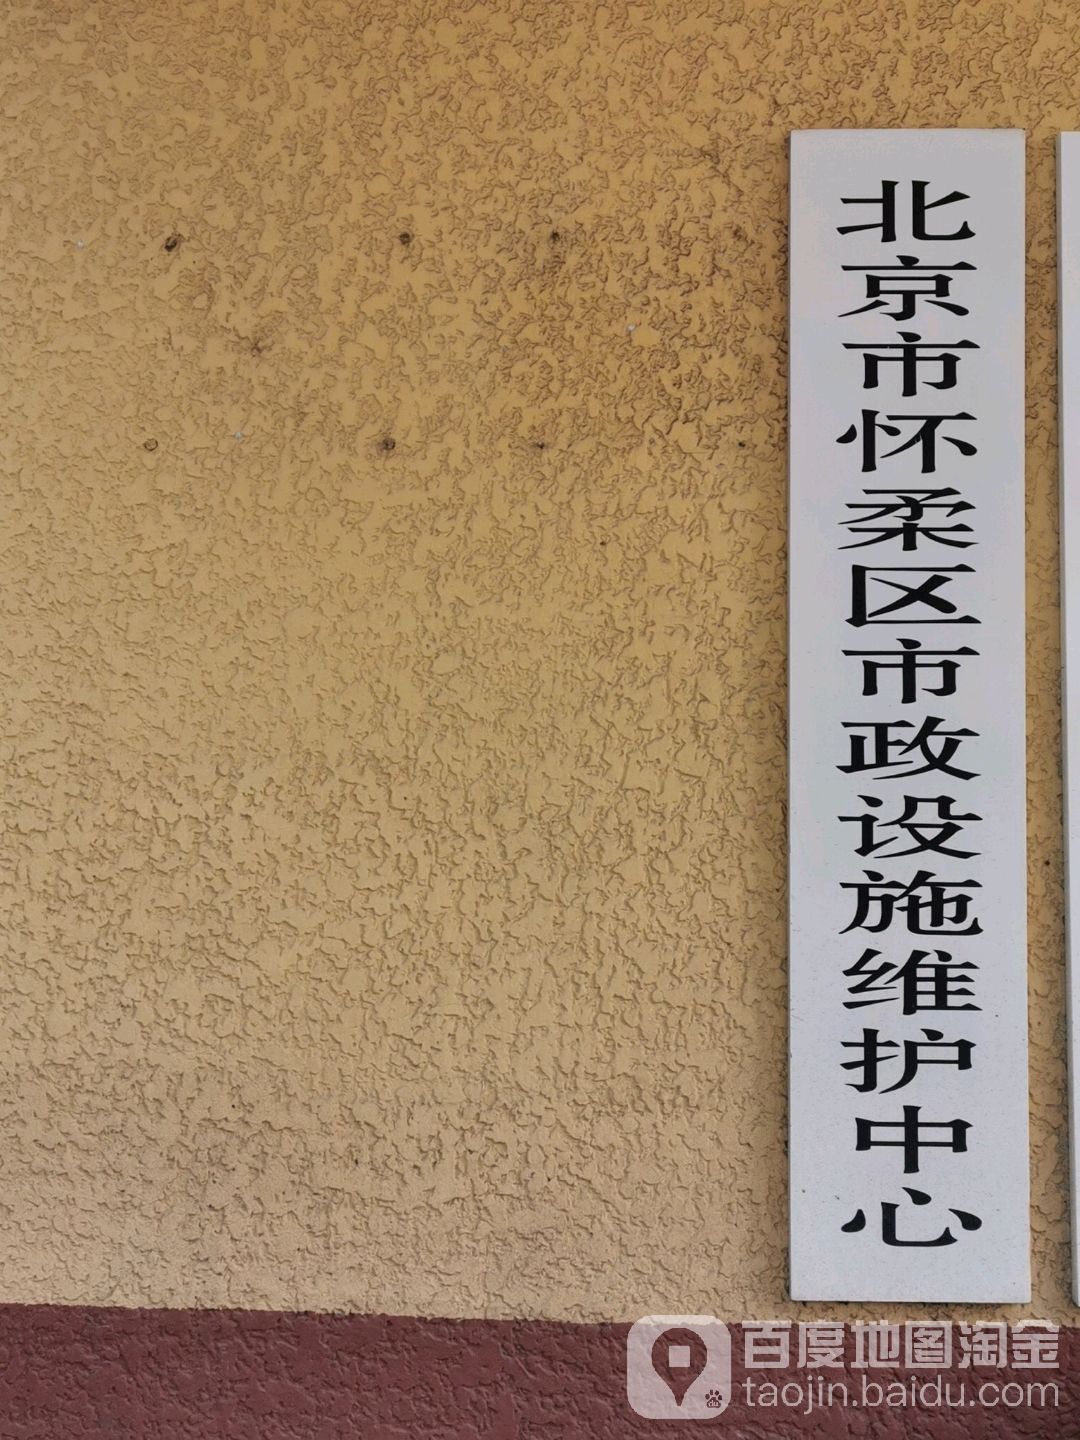 北京市怀柔区市政设施维护中心
百度地图淘金
taojin.baidu.com